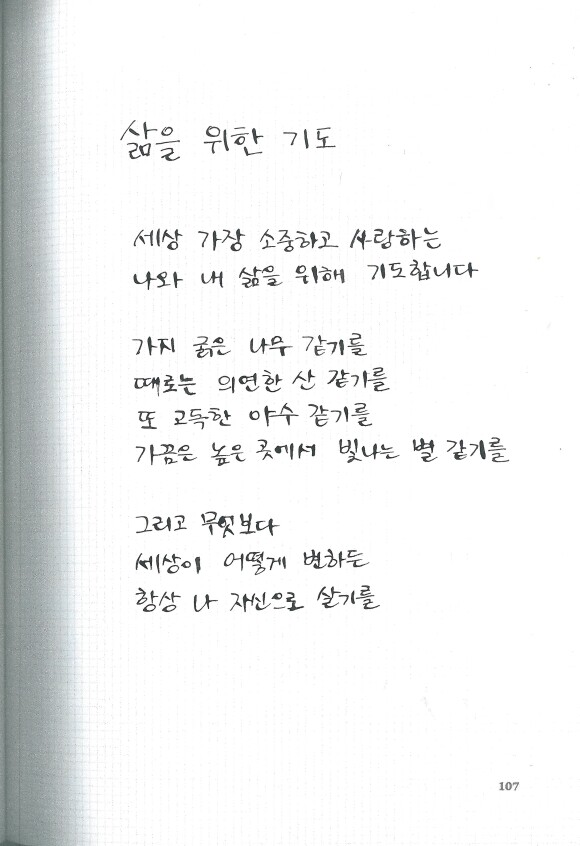 삶을 위한 기도
세상 가장 소중하고 사랑하는
나와 내 삶을 위해 기도합니다
가지 굵은 나무 같기를
때로는 의연한 산 같기를
또 고독한 야수 같기를
가끔은 높은 곳에서 빛나는 별 같기를
그리고 무엇보다
세상이 어떻게 변하든
항상 나 자신으로 살기를
107